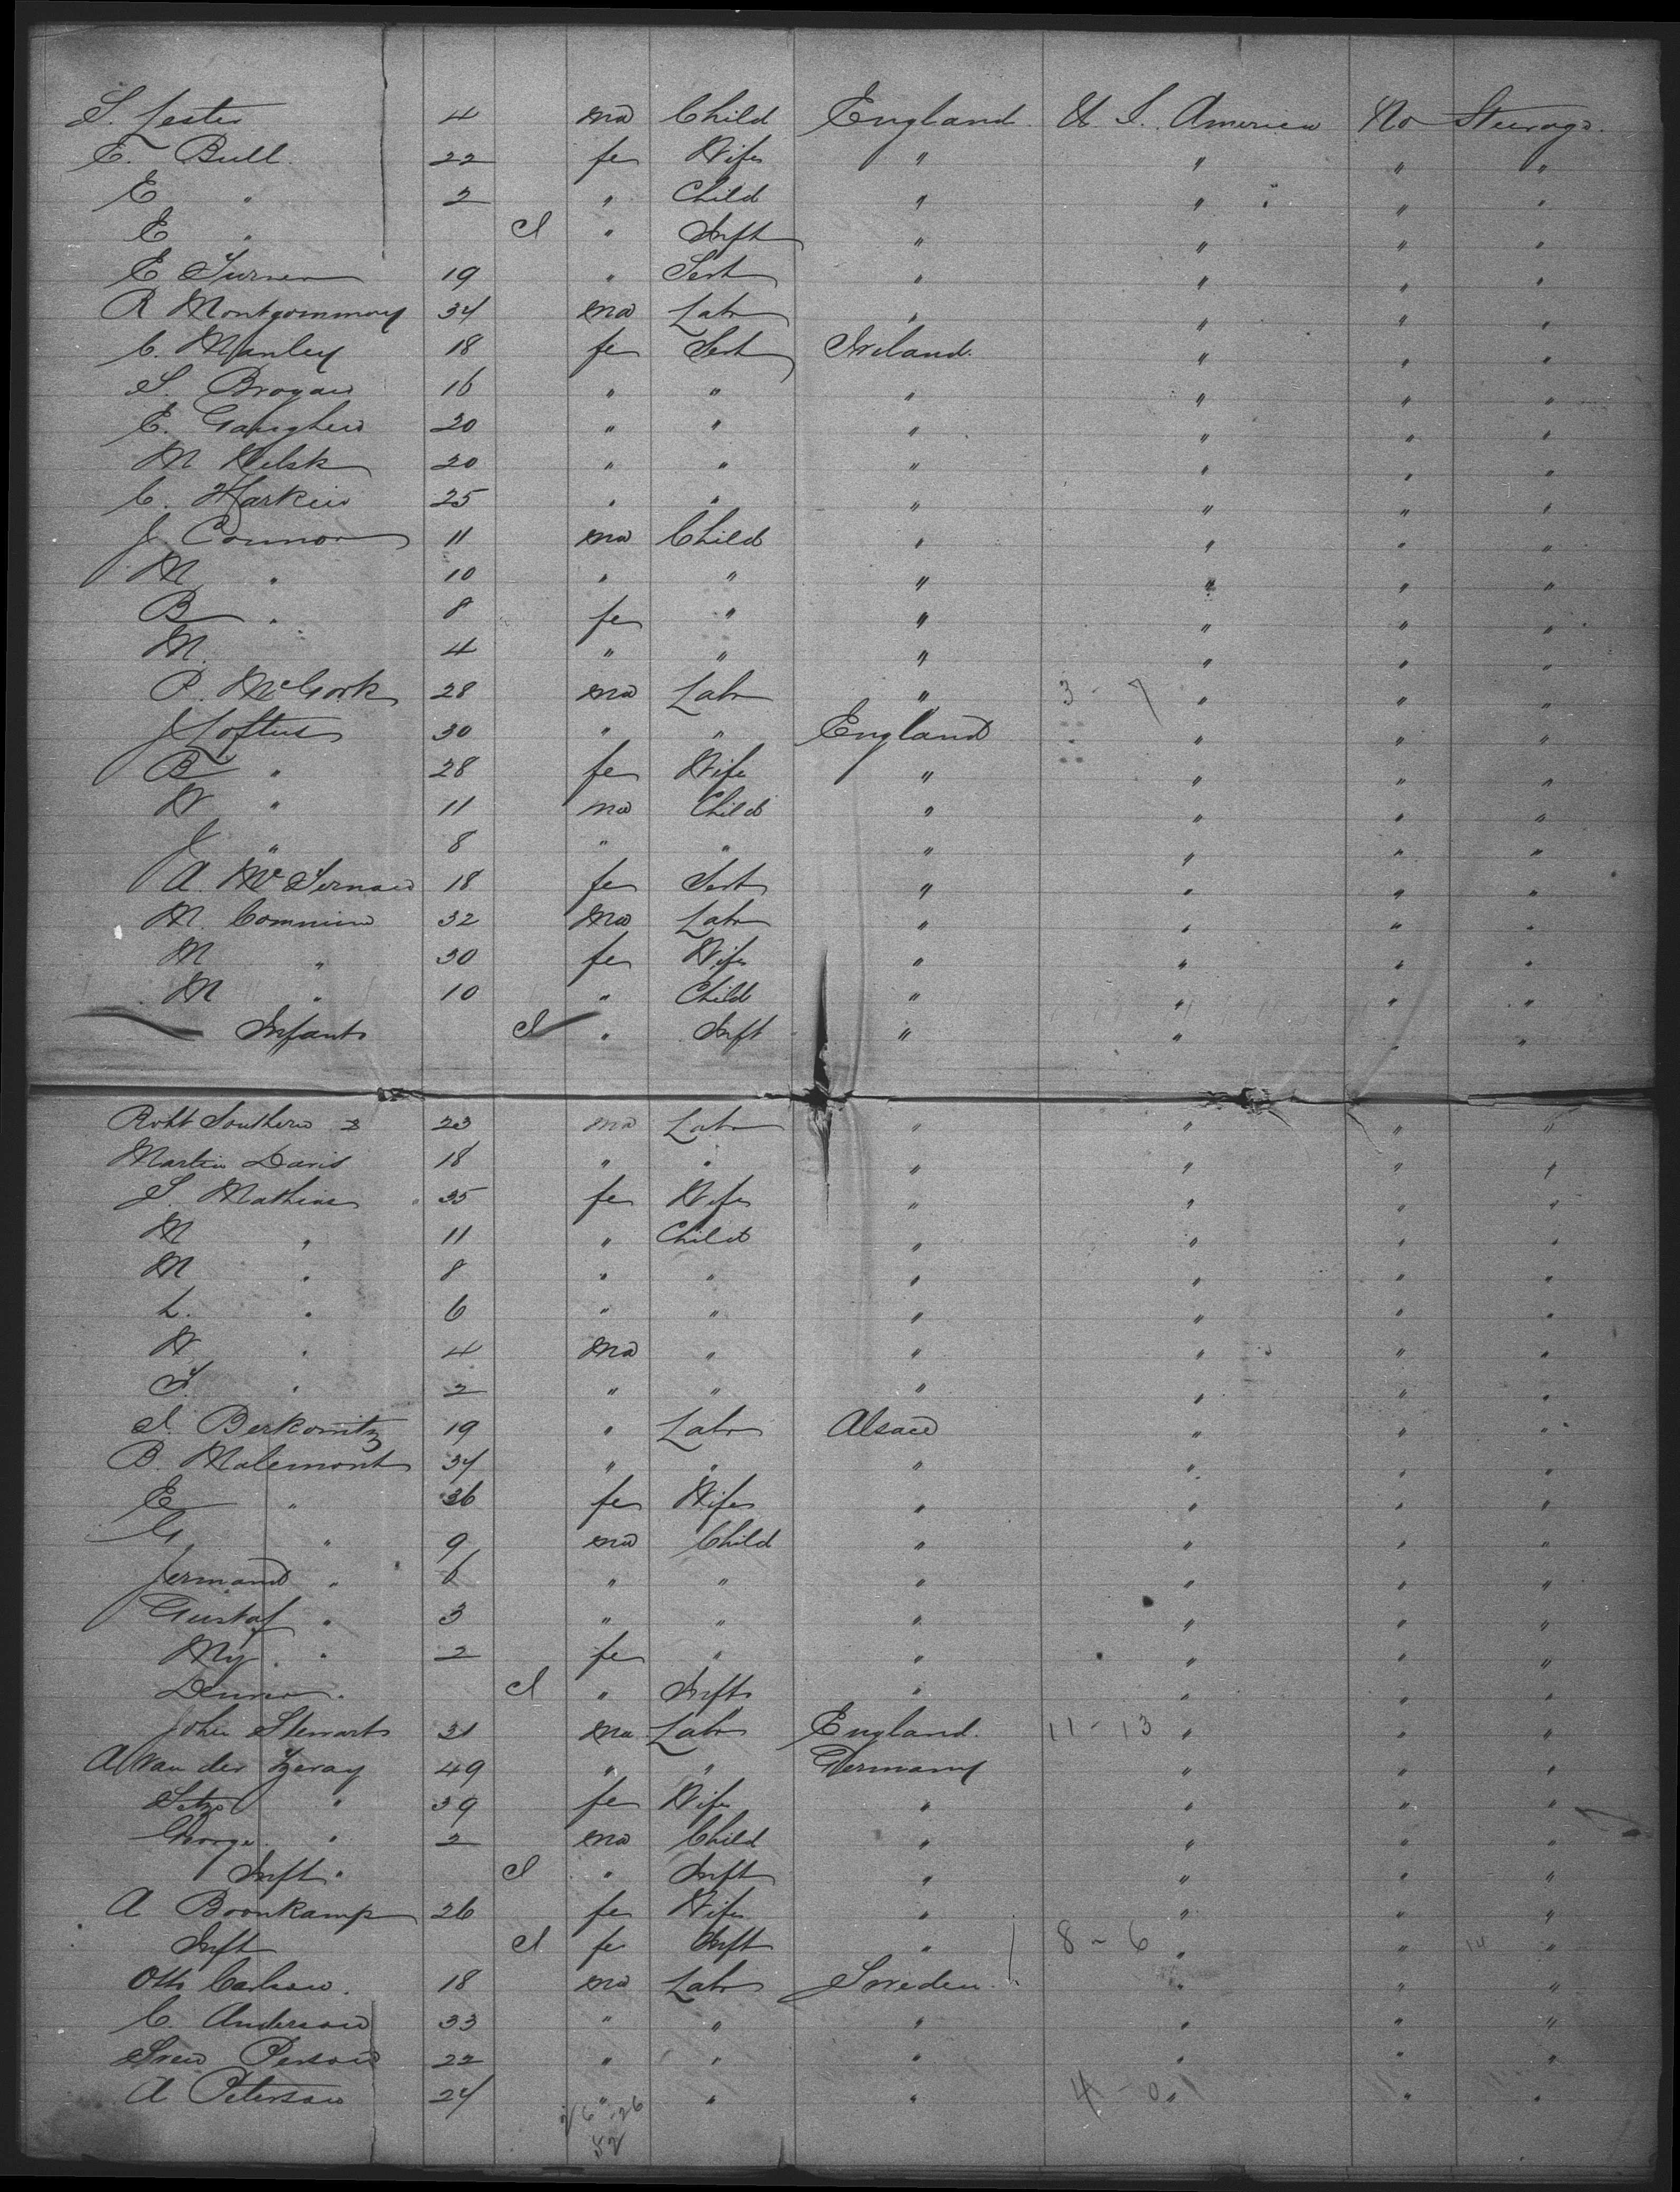 S. Lester 4 ma Child England U. S. America No Steerage.
E. Bull. 22 fe Wife " " " "
E " 2 " Child " " " "
E " I " Inft " " " "
E Turner 19 " Sert " " " "
R Montgommory 34 ma Labr " " " "
C. Manley 18 fe Sert Ireland. " " "
S. Brogan 16 " " " " " "
E. Gaughen 20 " " " " " "
M 20 " " " " " "
C. Harkin 25 " " " " " "
J Connor 11 ma Child " " " "
M " 10 " " " " " "
B " 8 fe " " " " "
M. 4 " " " " " "
P. McGork 28 ma Labr " 3 - 7 " " "
J Loftus 30 " " England " " "
B " 28 fe Wife " " " "
W " 11 ma Child " " " "
J " 8 " " " " " "
A. McTernan 18 fe Sert " " " "
M. 32 ma Labr " " " "
M " 30 fe Wife " " " "
M " 10 " Child " " " "
Infant I " Inft " " " "
Robt Southern 23 ma Labr " " " "
Martin Davis 18 " " " " " "
S. Mathias 35 fe Wife " " " "
M " 11 " Child " " " "
M " 8 " " " " " "
L. " 6 " " " " " "
W " 4 ma " " " " "
T. " 2 " " " " " "
I. Berkowitz 19 " Labr Alsace " " "
B. Malemont 34 " " " " " "
E " 36 fe Wife " " " "
G " 9 ma Child " " " "
Jermand " 6 " " " " " "
Gustaf " 3 " " " " " "
My " 2 fe " " " " "
I " Inft " " " "
John Stewart 31 ma Labr England. 11 - 13 " " "
A Van der 49 " " Germany " " "
" 39 fe Wife " " " "
George " 2 ma Child " " " "
Inft " I " Inft " " " "
A Boonkamp 26 fe Wife " " " "
Inft I fe Inft " 8 - 6 " " 14 "
Otto Carlson. 18 ma Labr Sweden. " " "
C. Anderson 33 " " " " " "
Sven Person 22 " " " " " "
A Peterson 24 " " " 4 - 0 " " "
26 26
52